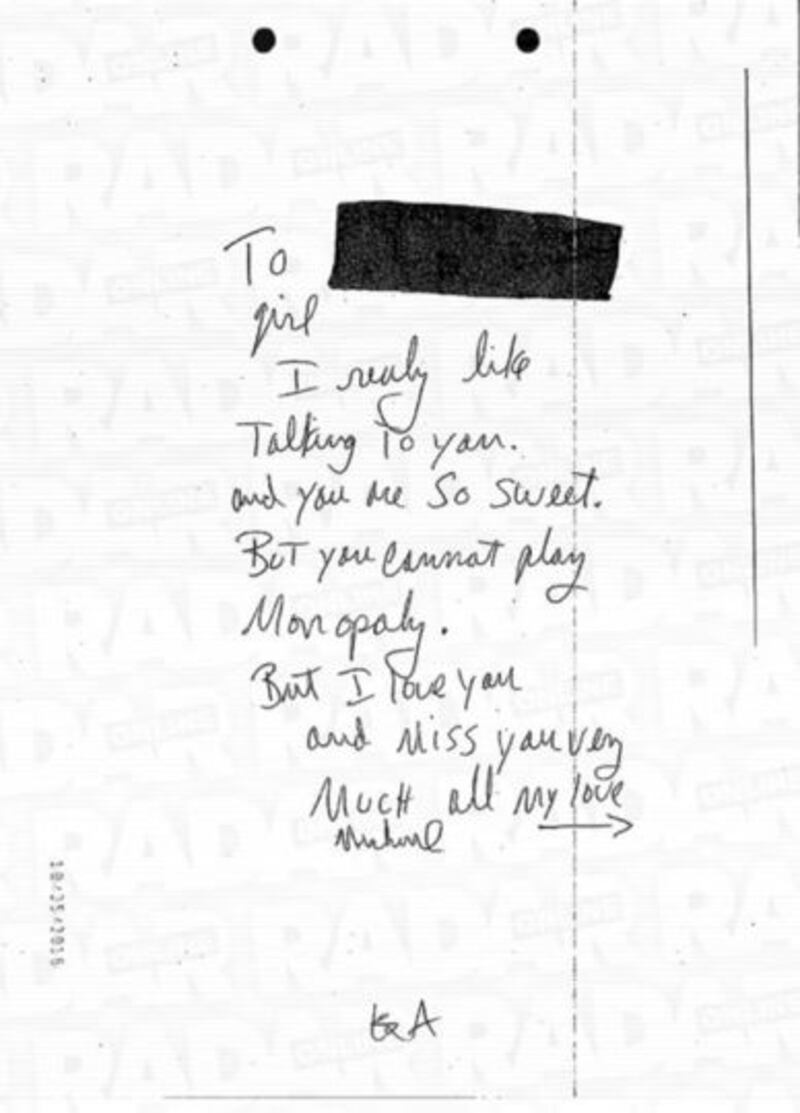 To
girl
I realy like
Talking To you.
and you are So Sweet.
BuT you cannat play
Monopoly.
But I love you
and Miss you very
MucH all my love
Michael
10/25/2016
A